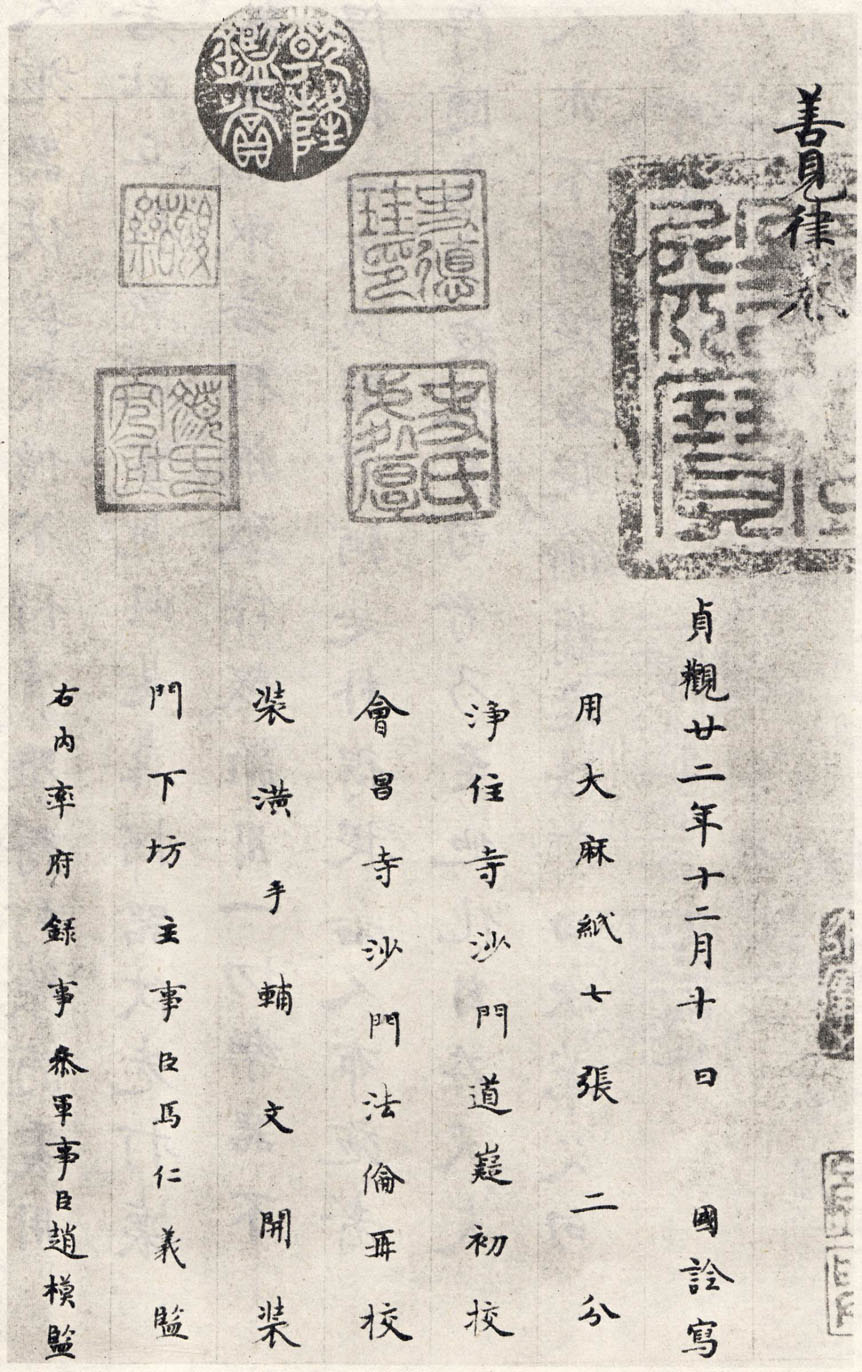 善見律卷
貞觀廿二年十二月十日 國詮寫
用大麻紙七張 二分
淨住寺沙門道嶷初校
會昌寺沙門法倫再校
装潢手輔文開装
門下坊主事臣馬仁義監
右內率府錄事參軍事臣趙模監
乾隆鑑賞
史德珪印
史氏